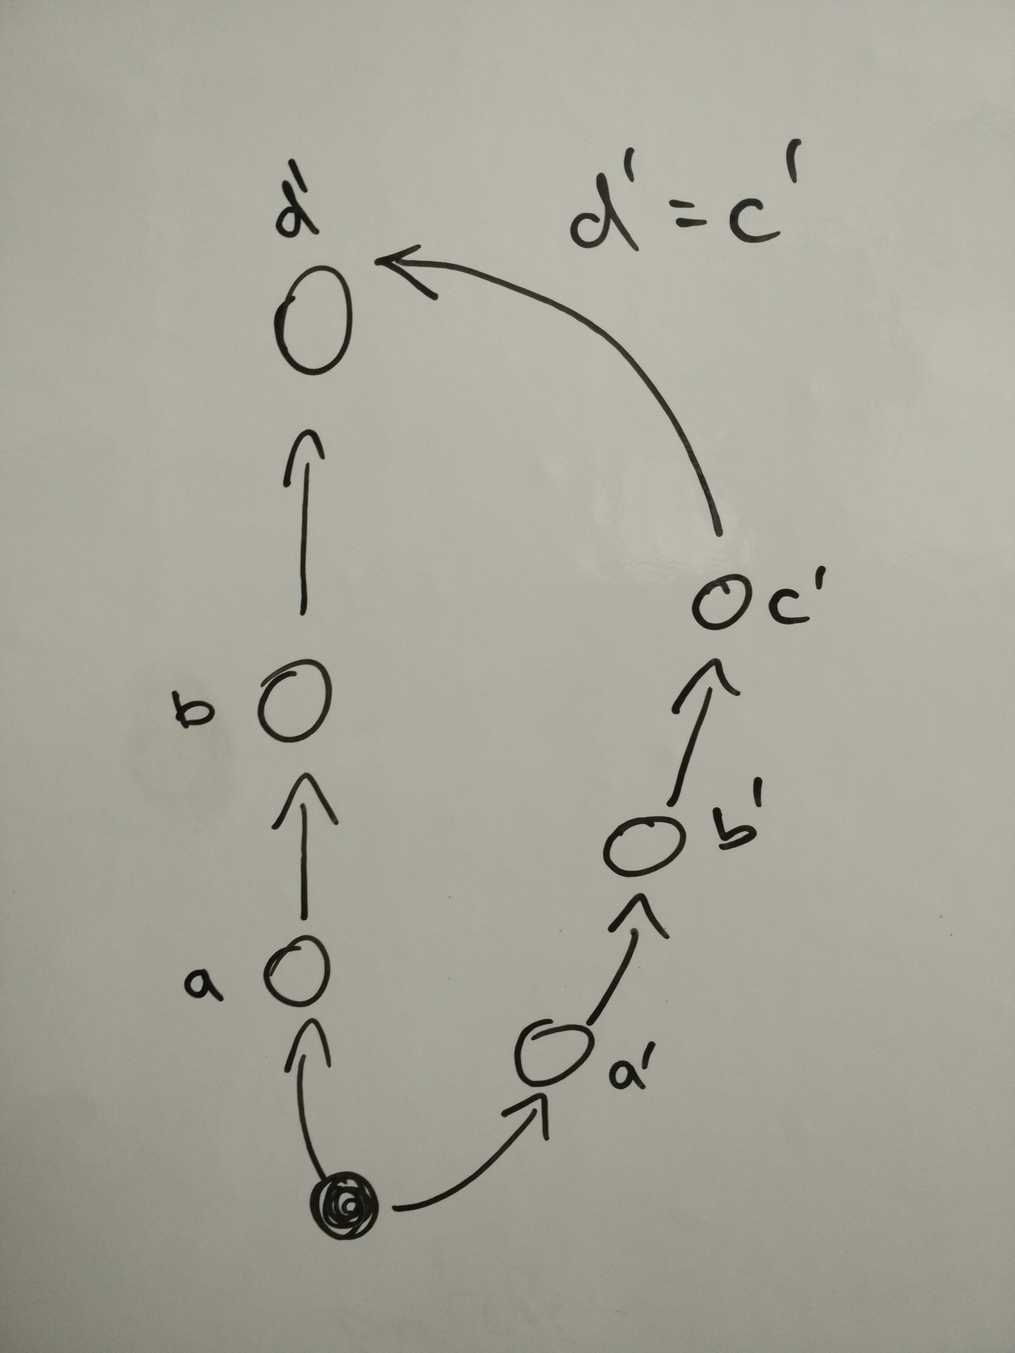 d'
d' = c'
c'
b
b'
a
a'